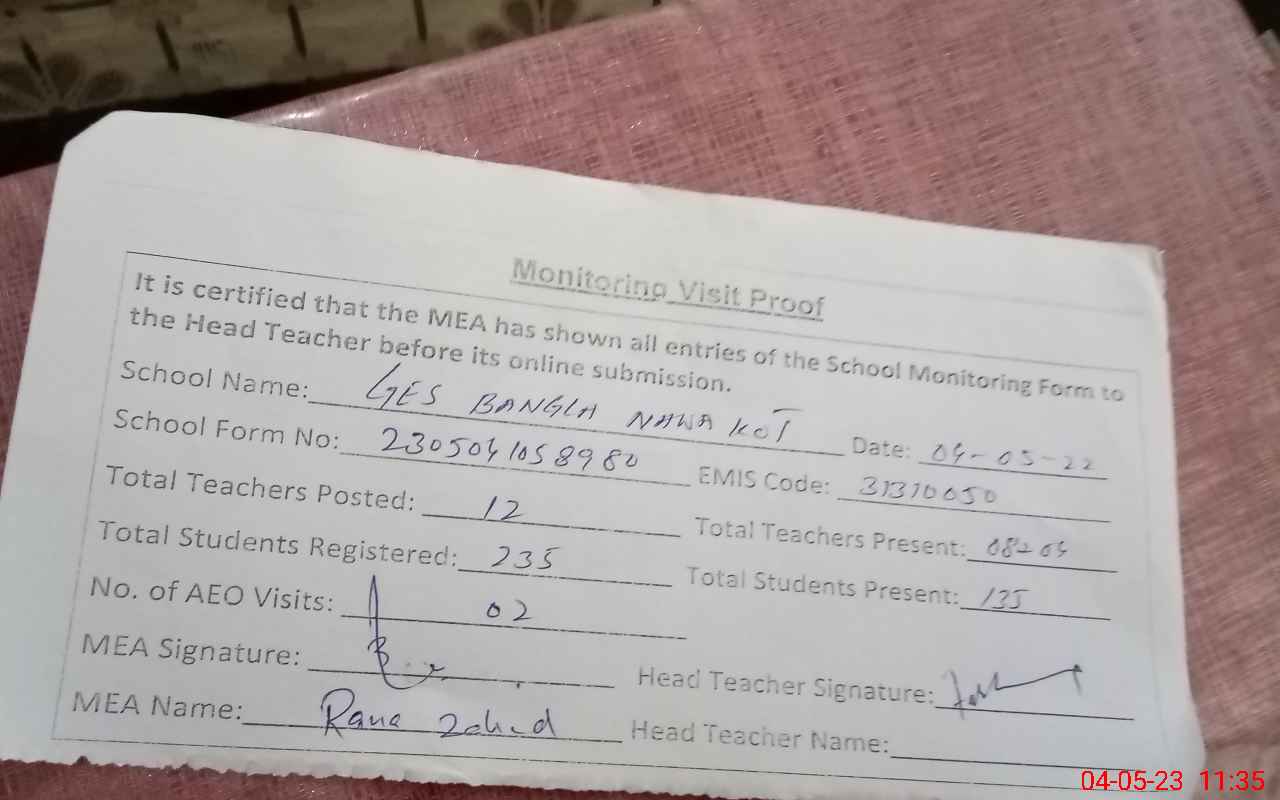 Monitoring Visit Proof
It is certified that the MEA has shown all entries of the School Monitoring Form to
the Head Teacher before its online submission.
School Name: GES BANGLA NAWA KOT Date: 04-05-22
School Form No: 2305041058980 EMIS Code: 31310050
Total Teachers Posted: 12 Total Teachers Present: 08
Total Students Registered: 235 Total Students Present: 135
No. of AEO Visits: 02
MEA Signature: Head Teacher Signature:
MEA Name: Rana Zahid Head Teacher Name:
04-05-23 11:35